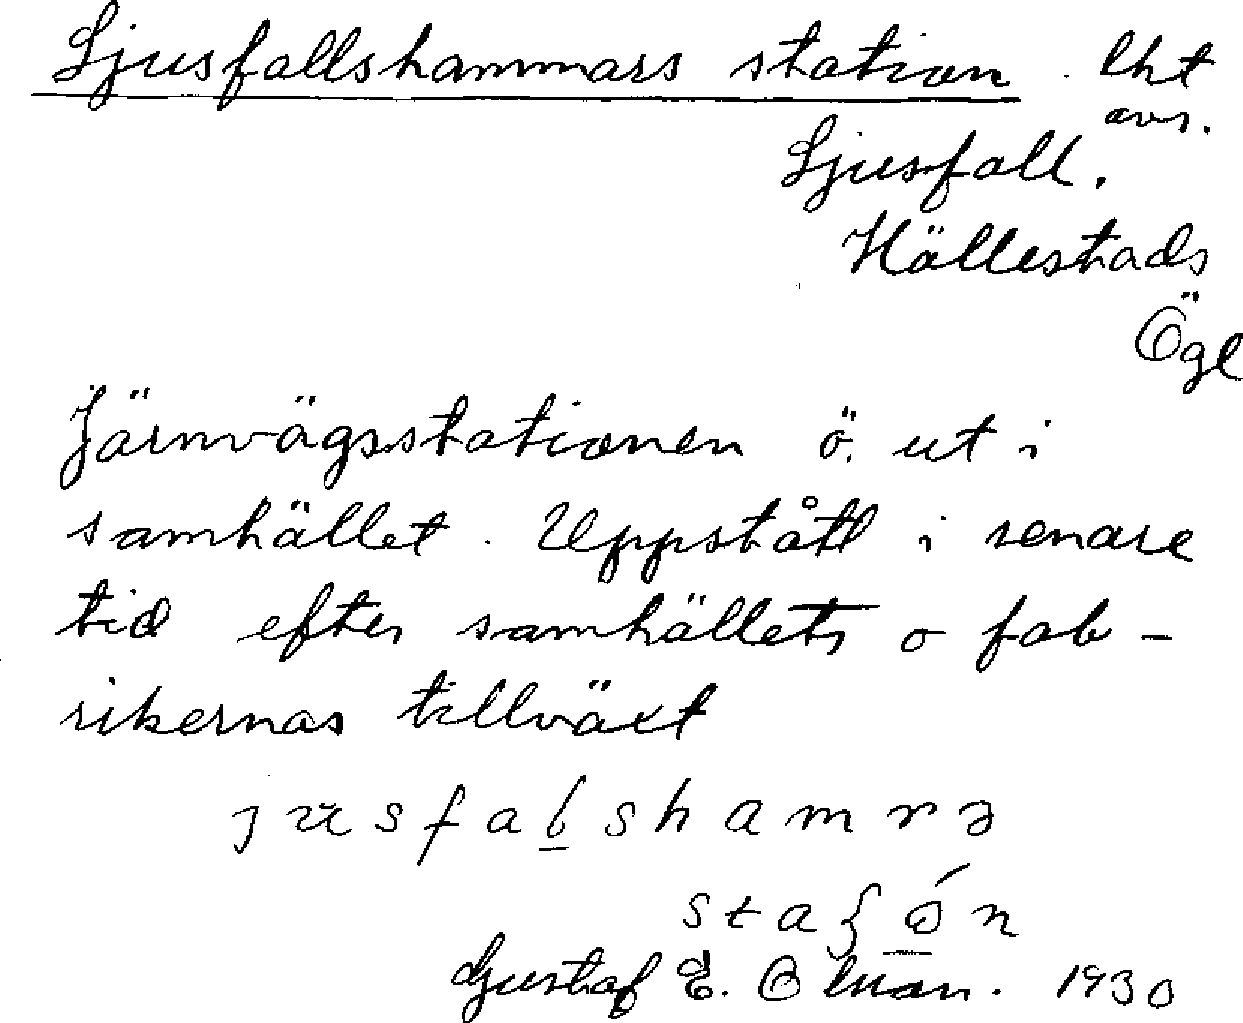 Ljusfallshammars station. lht
avs.
Ljusfall.
Hällestads
Ögl
Järnvägsstationen ö. ut i
samhället. Uppstått i senare
tid efter samhällets o fab-
rikernas tillväxt
Gustaf E. Olman. 1930